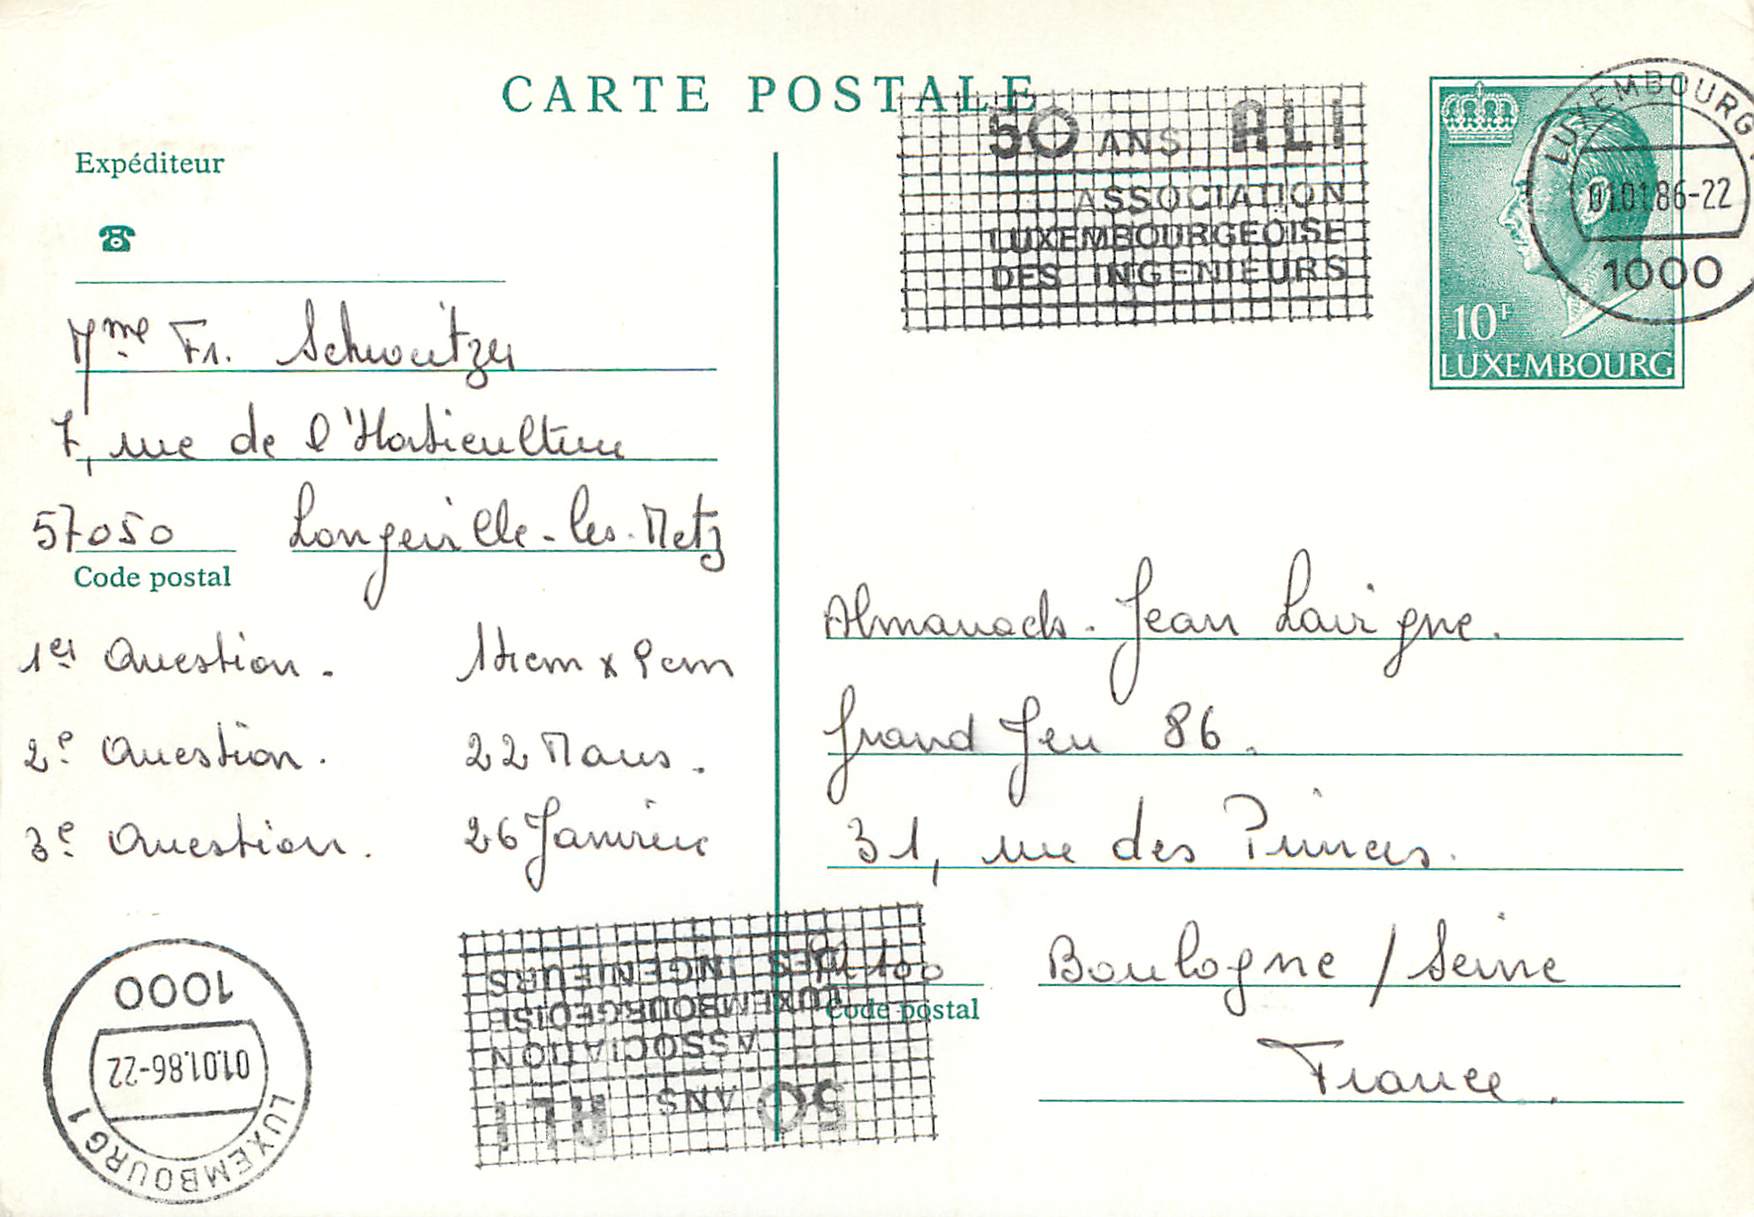 CARTE POSTALE
Expéditeur
Mme Fr. Schweitzer
7, rue de l'Horticulture
57050 Longeville-les-Metz
Code postal
1er Question. 14cm x 9cm
2e Question. 22 Mars.
3e Question. 26 Janvier
50 ANS ALI
ASSOCIATION
LUXEMBOURGEOISE
DES INGENIEURS
LUXEMBOURG 1
01.01.86-22
1000
10F
LUXEMBOURG
Almanachs. Jean Lavigne.
Grand Jeu 86.
31, rue des Princes.
92100 Boulogne / Seine
Code postal
France.
50 ANS ALI
ASSOCIATION
LUXEMBOURGEOISE
DES INGENIEURS
LUXEMBOURG 1
01.01.86-22
1000